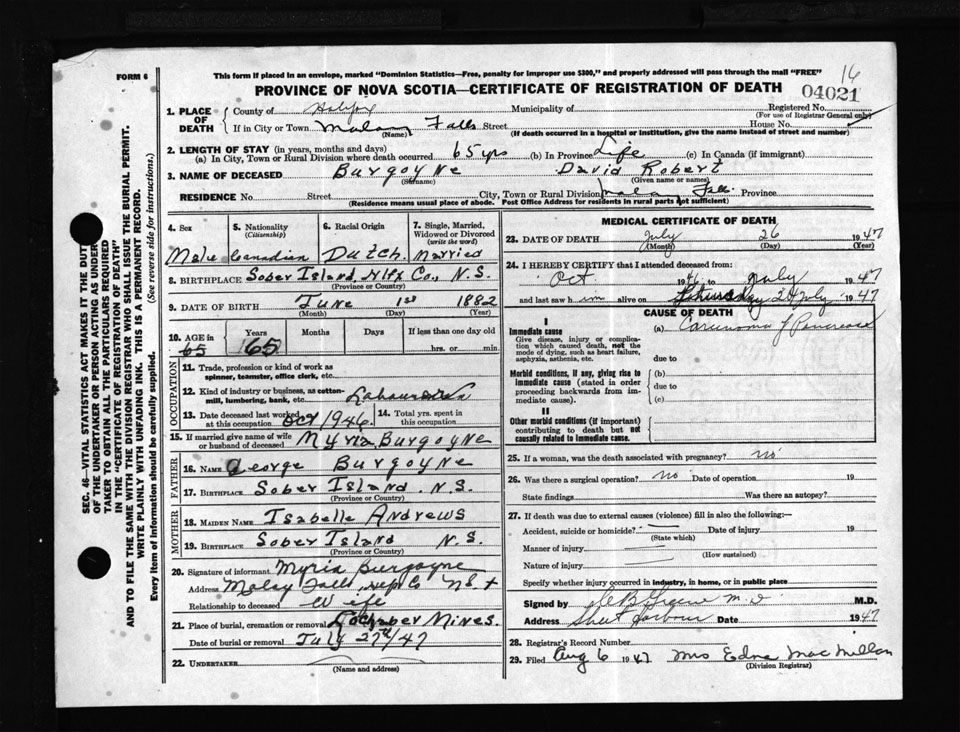 This form if placed in an envelope, marked "Dominion Statistics—Free, penalty for improper use $300," and properly addressed will pass through the mail "FREE"
FORM 6
16
PROVINCE OF NOVA SCOTIA—CERTIFICATE OF REGISTRATION OF DEATH
04021
1. PLACE OF DEATH
County of Halifax Municipality of Registered No.
(For use of Registrar General only)
If in City or Town Malay Falls Street House No.
(Name) (If death occurred in a hospital or institution, give the name instead of street and number)
2. LENGTH OF STAY (in years, months and days)
(a) In City, Town or Rural Division where death occurred 65 yrs (b) In Province Life (c) In Canada (if immigrant)
3. NAME OF DECEASED Burgoyne David Robert
(Surname) (Given name or names)
RESIDENCE No. Street City, Town or Rural Division Falls Province
(Residence means usual place of abode. Post Office Address for residents in rural parts not sufficient)
4. Sex
Male
5. Nationality
(Citizenship)
Canadian
6. Racial Origin
Dutch
7. Single, Married, Widowed or Divorced
(write the word)
Married
8. BIRTHPLACE Sober Island, Hlfx Co., N.S.
(Province or Country)
9. DATE OF BIRTH June 1st 1882
(Month) (Day) (Year)
10. AGE in
65
Years
65
Months
Days
If less than one day
hrs. or min.
OCCUPATION
11. Trade, profession or kind of work as spinner, teamster, office clerk, etc.
12. Kind of industry or business, as cotton-mill, lumbering, bank, etc.
13. Date deceased last worked at this occupation Oct 1946
14. Total yrs. spent in this occupation
15. If married give name of wife or husband of deceased Myria Burgoyne
FATHER
16. NAME George Burgoyne
17. BIRTHPLACE Sober Island N.S.
(Province or Country)
MOTHER
18. MAIDEN NAME Isabelle Andrews
19. BIRTHPLACE Sober Island N.S.
(Province or Country)
20. Signature of informant Myria Burgoyne
Address Malay Falls, Co N.S.
Relationship to deceased Wife
21. Place of burial, cremation or removal Lochaber Mines.
Date of burial or removal July 27th/47
22. UNDERTAKER
(Name and address)
MEDICAL CERTIFICATE OF DEATH
23. DATE OF DEATH July 26 1947
(Month) (Day) (Year)
24. I HEREBY CERTIFY that I attended deceased from:
Oct. 1946 to July 1947
and last saw him alive on Thursday 24 July 1947
CAUSE OF DEATH
I
Immediate cause
Give disease, injury or complication which caused death, not the mode of dying, such as heart failure, asphyxia, asthenia, etc.
(a) Carcinoma of Pancreas
due to
Morbid conditions, if any, giving rise to immediate cause (stated in order proceeding backwards from immediate cause).
(b)
due to
(c)
II
Other morbid conditions (if important) contributing to death but not causally related to immediate cause.
25. If a woman, was the death associated with pregnancy? no
26. Was there a surgical operation? no Date of operation 19
State findings Was there an autopsy?
27. If death was due to external causes (violence) fill in also the following:—
Accident, suicide or homicide? Date of injury 19
(State which)
Manner of injury
(How sustained)
Nature of injury
Specify whether injury occurred in industry, in home, or in public place
Signed by M.D. M.D.
Address Sheet Harbour Date 1947
28. Registrar's Record Number
29. Filed Aug 6 1947 Mrs Edna MacMillan
(Division Registrar)
SEC. 46—VITAL STATISTICS ACT MAKES IT THE DUTY
OF THE UNDERTAKER OR PERSON ACTING AS UNDERTAKER TO OBTAIN ALL THE PARTICULARS REQUIRED
IN THE "CERTIFICATE OF REGISTRATION OF DEATH"
AND TO FILE THE SAME WITH THE DIVISION REGISTRAR WHO SHALL ISSUE THE BURIAL PERMIT.
WRITE PLAINLY WITH UNFADING INK. THIS IS A PERMANENT RECORD.
Every item of information should be carefully supplied. (See reverse side for instructions.)